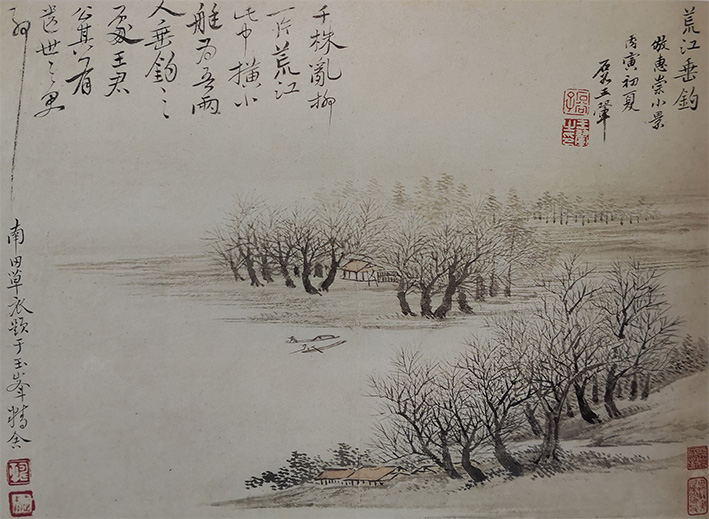 荒江垂釣
倣惠崇小景
丙寅初夏
王翬
千株亂柳
一片荒江
此中橫小
艇為吾兩
人垂釣之
處王君
公其有
遺世之思
耶
南田草衣題于玉峯精舍